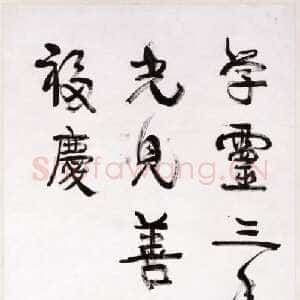 学靈三
光見善
福慶
ShufaWang.CN